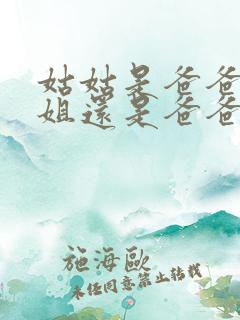 姑姑是爸爸
姐還是爸爸
施海歐
未经同意禁止转载